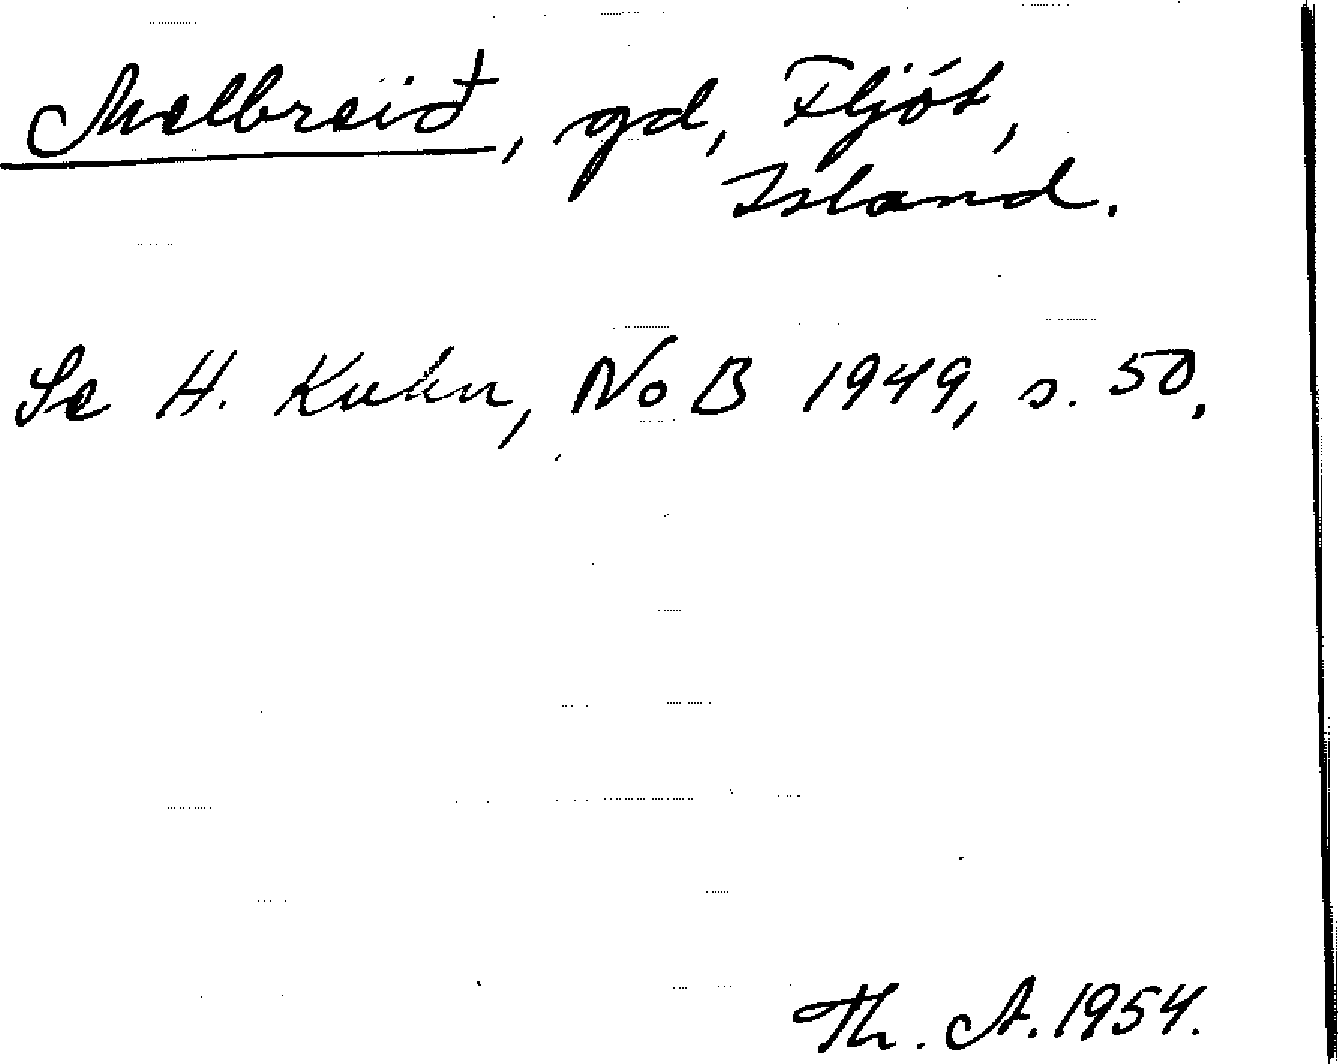 Melbreið, gd, Fljót,
Island.
Se H. Kuhn, NoB 1949, s. 50.
Th. A. 1954.